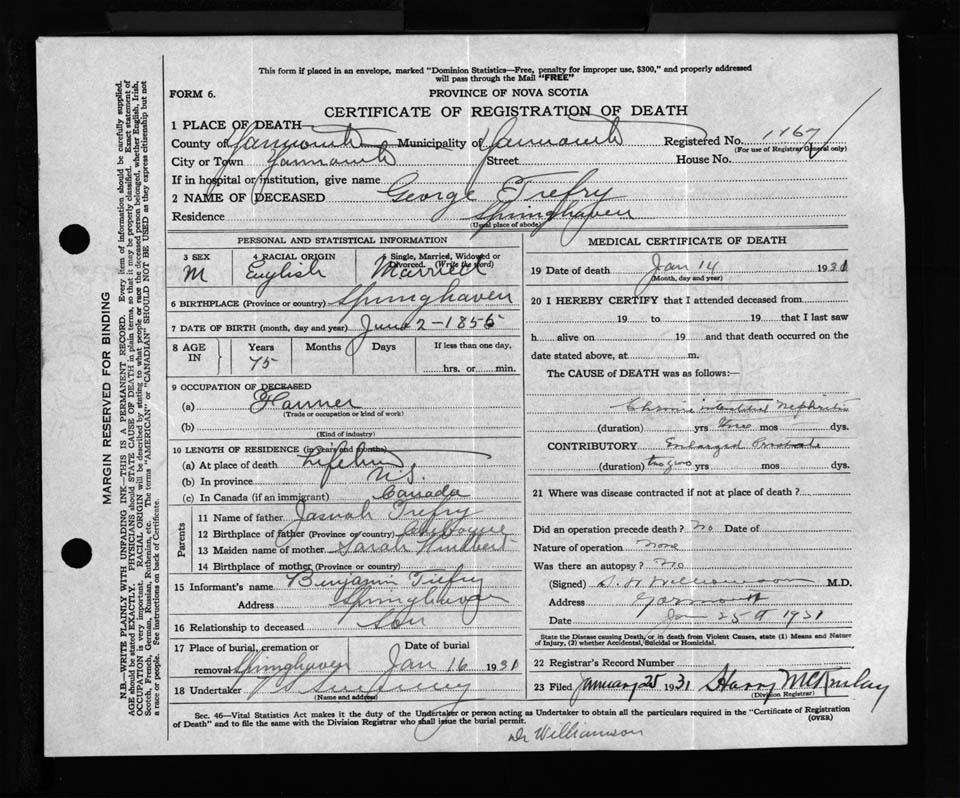 This form if placed in an envelope, marked "Dominion Statistics—Free, penalty for improper use, $300," and properly addressed
will pass through the Mail "FREE"
FORM 6.
PROVINCE OF NOVA SCOTIA
CERTIFICATE OF REGISTRATION OF DEATH
1 PLACE OF DEATH
County of Yarmouth Municipality of Yarmouth Registered No. 1167
(For use of Registrar General only)
City or Town Yarmouth Street House No.
If in hospital or institution, give name
2 NAME OF DECEASED George Trefry
Residence Springhaven
(Usual place of abode)
PERSONAL AND STATISTICAL INFORMATION
3 SEX 4 RACIAL ORIGIN 5 Single, Married, Widowed or
Divorced. (Write the word)
M English Married
6 BIRTHPLACE (Province or country) Springhaven
7 DATE OF BIRTH (month, day and year) June 2-1855
8 AGE IN Years Months Days If less than one day,
75 hrs. or min.
9 OCCUPATION OF DECEASED
(a) Farmer
(Trade occupation or kind of work)
(b)
(Kind of industry)
10 LENGTH OF RESIDENCE (in years and months)
(a) At place of death Lifetime
(b) In province N.S.
(c) In Canada (if an immigrant) Canada
Parents
11 Name of father Trefry
12 Birthplace of father (Province or country)
13 Maiden name of mother Sarah
14 Birthplace of mother (Province or country)
15 Informant's name Benjamin Trefry
Address Springhaven
16 Relationship to deceased Son
17 Place of burial, cremation or Date of burial
removal Springhaven Jan 16 1931
18 Undertaker
(Name and address)
MEDICAL CERTIFICATE OF DEATH
19 Date of death Jan 14 1931
(Month, day and year)
20 I HEREBY CERTIFY that I attended deceased from
19 to 19 that I last saw
h alive on 19 and that death occurred on the
date stated above, at m.
The CAUSE of DEATH was as follows:—
Chronic interstitial Nephritis
(duration) yrs mos dys.
CONTRIBUTORY Enlarged Prostate
(duration) yrs mos dys.
21 Where was disease contracted if not at place of death?
Did an operation precede death? No Date of
Nature of operation None
Was there an autopsy? No
(Signed) Williamson M.D.
Address Yarmouth
Date Jan 25th 1931
State the Disease causing Death, or in death from Violent Causes, state (1) Means and Nature
of Injury, (2) whether Accidental, Suicidal or Homicidal.
22 Registrar's Record Number
23 Filed January 25 1931 Harry McKinlay
(Division Registrar)
Sec. 46—Vital Statistics Act makes it the duty of the Undertaker or person acting as Undertaker to obtain all the particulars required in the "Certificate of Registration
of Death" and to file the same with the Division Registrar who shall issue the burial permit.
(OVER)
Dr Williamson
MARGIN RESERVED FOR BINDING
N.B.—WRITE PLAINLY WITH UNFADING INK—THIS IS A PERMANENT RECORD. Every item of information should be carefully supplied.
AGE should be stated EXACTLY. PHYSICIANS should STATE CAUSE OF DEATH in plain terms, so that it may be properly classified. Exact statement of
OCCUPATION is very important. RACIAL ORIGIN will be described by stating to what people or race the deceased person belonged, whether English, Irish,
Scotch, French, German, Russian, Ruthenian, etc. The terms "AMERICAN" or "CANADIAN" SHOULD NOT BE USED as they express citizenship but not
a race or people. See instructions on back of Certificate.